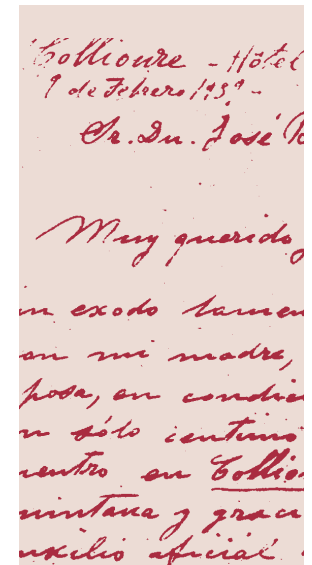 Collioure - Hôtel
9 de Febrero 1939 -
Sr. Dn. José
Muy querido
un exodo lamen
on mi madre,
posa, en condici
n sólo centimo
uentro en Collio
uintana y graci
uxilio oficial